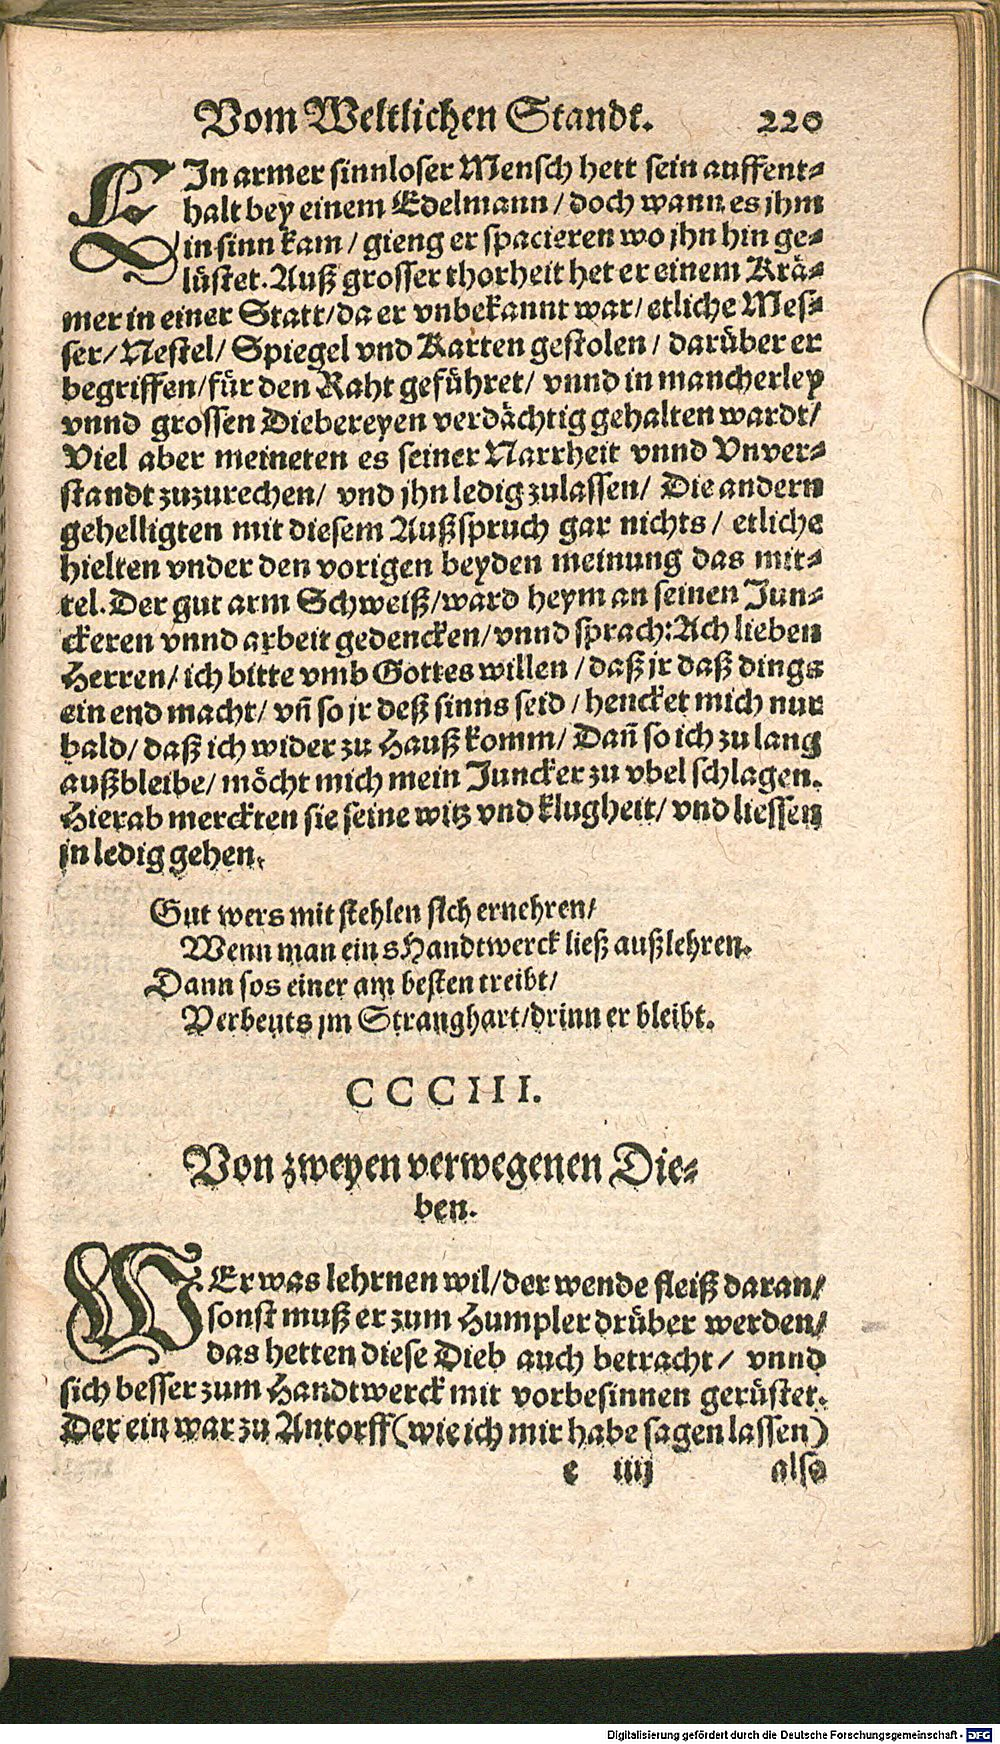 Vom Weltlichen Standt. 220
EIn armer sinnloser Mensch hett sein auffent⸗
halt bey einem Edelmann / doch wann es jhm
in sinn kam / gieng er spacieren wo jhn hin ge⸗
lüstet. Auß grosser thorheit het er einem Krä⸗
mer in einer Statt/ da er vnbekannt war/ etliche Mes⸗
ser/ Nestel/ Spiegel vnd Karten gestolen / darüber er
begriffen/ für den Raht geführet/ vnnd in mancherley
vnnd grossen Diebereyen verdächtig gehalten wardt/
Viel aber meineten es seiner Narrheit vnnd Vnver⸗
standt zuzurechen/ vnd jhn ledig zulassen/ Die andern
gehelligten mit diesem Außspruch gar nichts / etliche
hielten vnder den vorigen beyden meinung das mit⸗
tel. Der gut arm Schweiß/ ward heym an seinen Jun⸗
ckeren vnnd arbeit gedencken/ vnnd sprach: Ach lieben
Herren/ ich bitte vmb Gottes willen / daß jr daß dings
ein end macht/ vñ so jr deß sinns seid / hencket mich nur
bald/ daß ich wider zu Hauß komm/ Dañ so ich zu lang
außbleibe/ möcht mich mein Juncker zu vbel schlagen.
Hierab merckten sie seine witz vnd klugheit/ vnd liessen
jn ledig gehen.
Gut wers mit stehlen sich ernehren/
Wenn man ein s Handtwerck ließ außlehren.
Dann sos einer am besten treibt/
Verbeuts jm Stranghart/ drinn er bleibt.
CCCIII.
Von zweyen verwegenen Die⸗
ben.
WEr was lehrnen wil/ der wende fleiß daran/
sonst muß er zum Humpler drüber werden/
das hetten diese Dieb auch betracht / vnnd
sich besser zum Handtwerck mit vorbesinnen gerüstet.
Der ein war zu Antorff (wie ich mir habe sagen lassen)
e iiij also
Digitalisierung gefördert durch die Deutsche Forschungsgemeinschaft - DFG